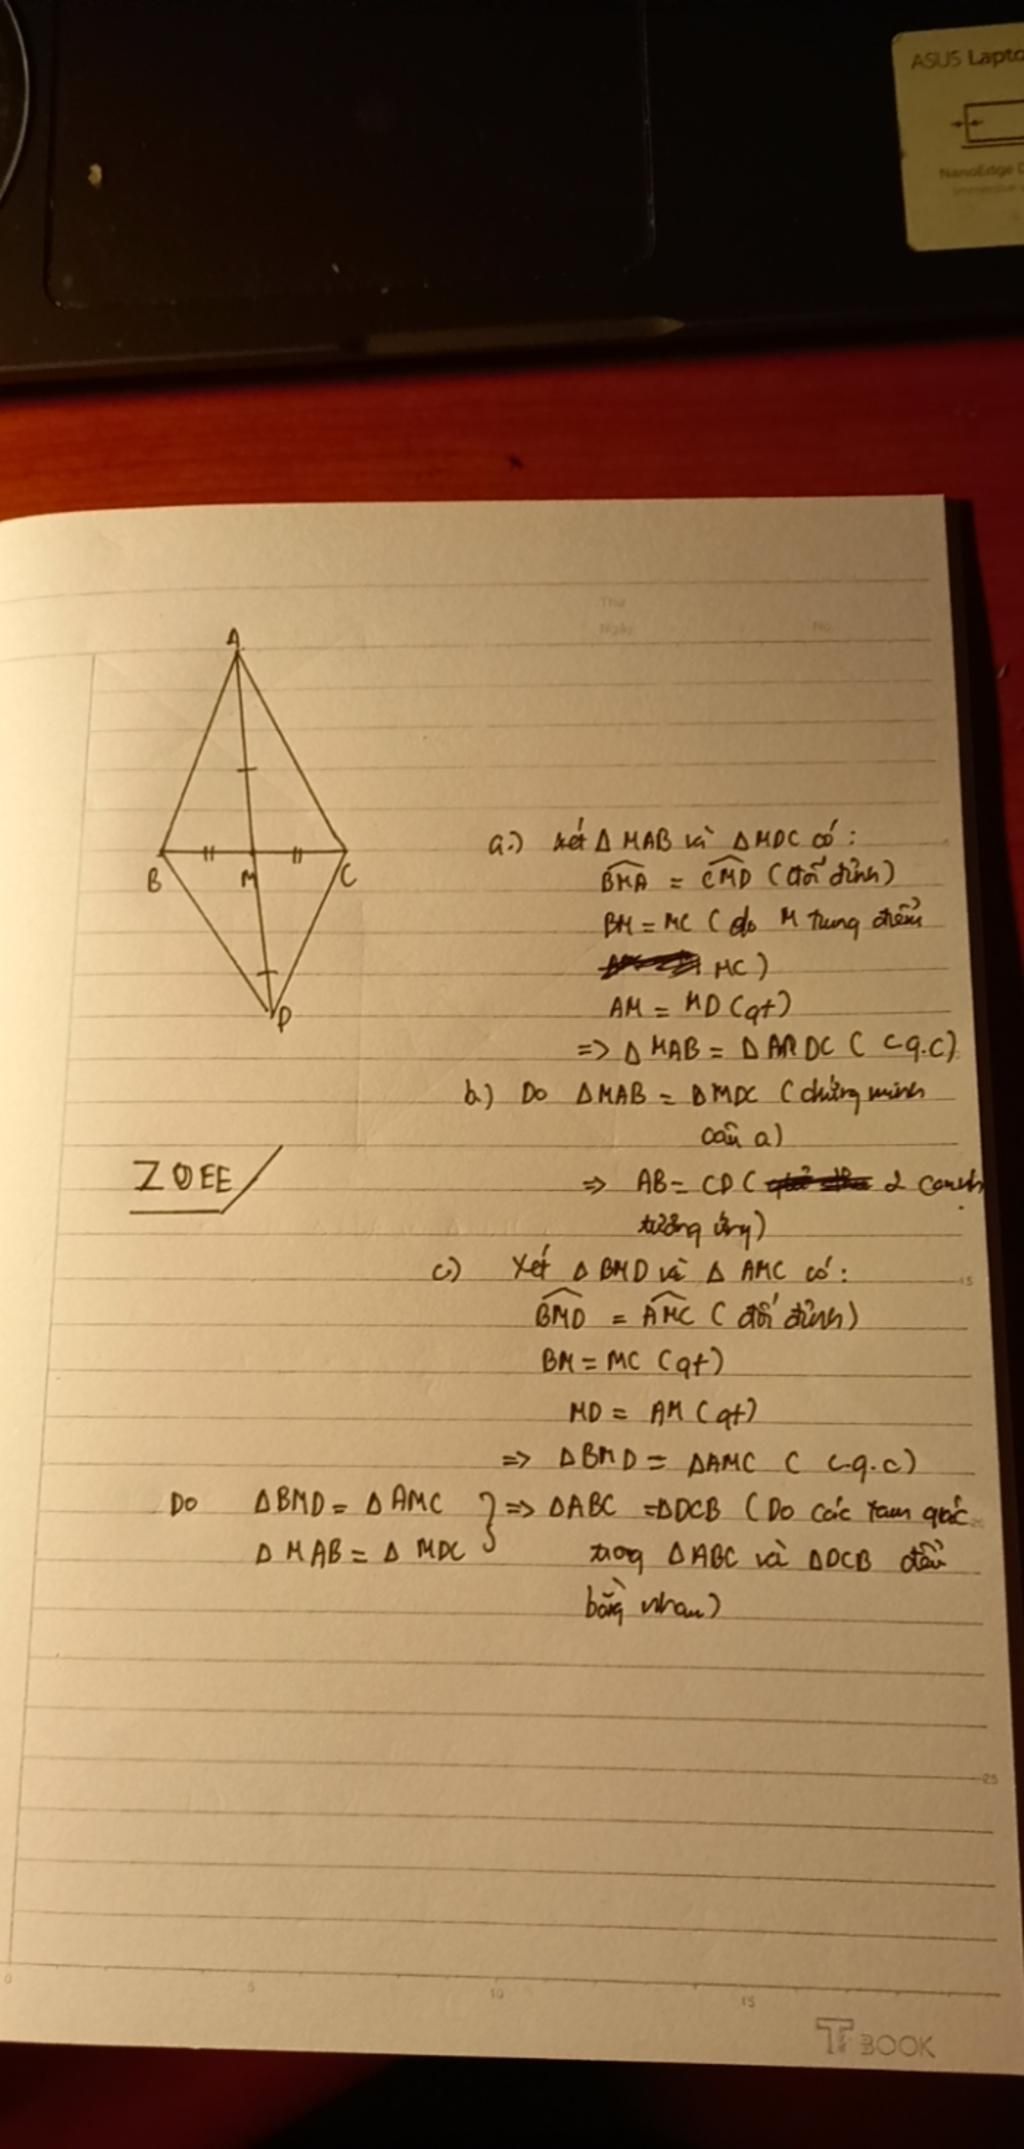 ASUS Lapto
NanoEdge D
Thứ
Ngày
No.
A
B
M
C
D
a.) Xét Δ MAB và Δ MDC có:
BMA = CMD (đối đỉnh)
BM = MC ( do M trung điểm
MC)
AM = MD (gt)
=> Δ MAB = Δ AMDC ( c.g.c)
b.) Do ΔMAB = ΔMDC (chứng minh
câu a)
ZOEE
=> AB = CD ( 2 cạnh
tương ứng)
c) Xét Δ BMD và Δ AMC có:
15
BMD = AMC ( đối đỉnh)
BM = MC (gt)
MD = AM (gt)
=> ΔBMD = ΔAMC ( c.g.c)
Do ΔBMD = Δ AMC } => ΔABC = ΔDCB (Do các tam giác
Δ MAB = Δ MDC trong ΔABC và ΔDCB đều
bằng nhau)
25
0 5 10 15
TT BOOK